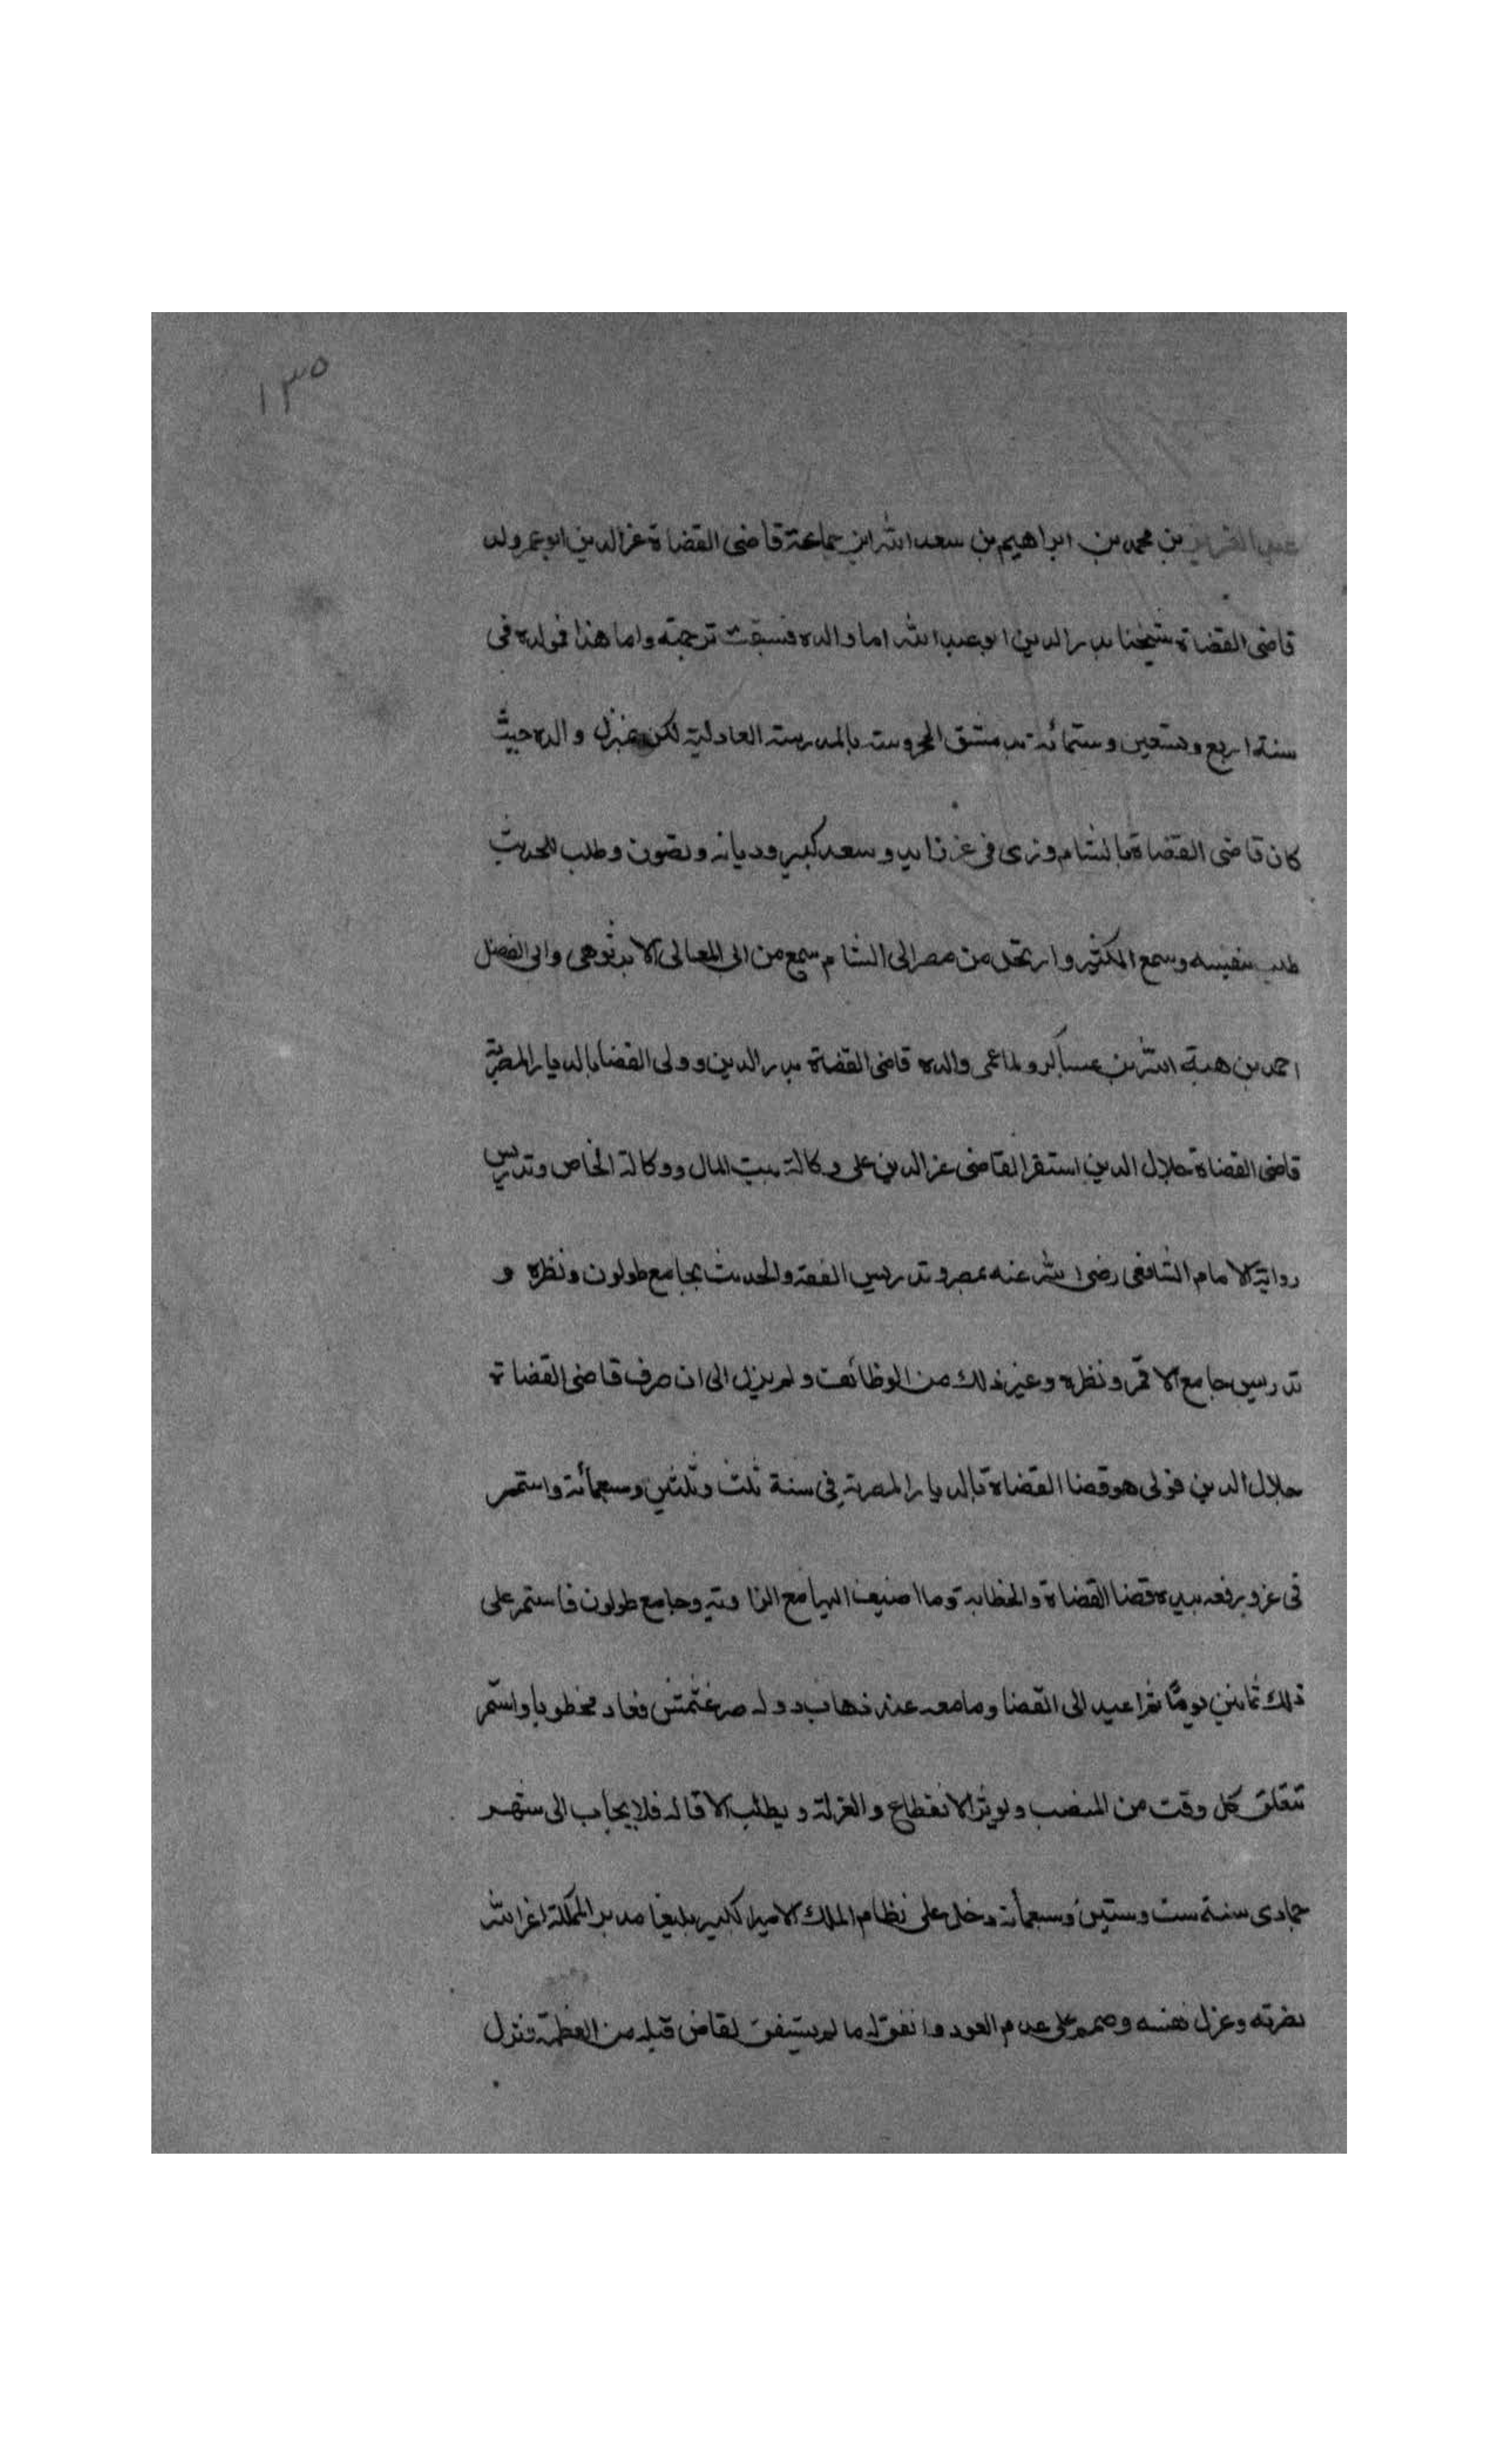 ١٣٥
عبد العزيز بن محمد بن ابراهيم بن سعد الله ابن جماعة قاضى القضاة عز الدين ابو عمر ولد
قاضى القضاة شيخنا بدر الدين ابو عبد الله اما والده فسبقت ترجمته واما هذا فمولده فى
سنة اربع وتسعين وستمائة بدمشق المحروسة بالمدرسة العادلية لكن بمنزل والده حيث
كان قاضى القضاة بالشام وربى فى عز زايد وسعد كبير وديانه وتصون وطلب الحديث
طلب بنفسه وسمع الكثير وارتحل من مصر الى الشام سمع من ابى المعالى الابرقوهى وابى الفضل
احمد بن هبة الله بن عساكر ولما عمى والده قاضى القضاة بدر الدين وولى القضا بالديار المصرية
قاضى القضاة جلال الدين استقر القاضى عز الدين على وكالة بيت المال ووكالة الخاص وتدريس
زواية الامام الشافعى رضى الله عنه بمصر وتدريس الفقه والحديث بجامع طولون ونظره و
تدريس جامع الاقمر ونظره وغير ذلك من الوظائف ولم يزل الى ان صرف قاضى القضاة
جلال الدين فولى هو قضا القضاة بالديار المصرية فى سنة ثلث وثلثين وسبعمائة واستمر
فى عز و رفعه بيده قضا القضاة والخطابة وما اضيف اليها مع الزاوية وجامع طولون فاستمر على
ذلك ثمانين يومًا ثم اعيد الى القضا وما معه عند ذهاب دولة صرغتمش فعاد مخطوبا واستمر
تتقلق كل وقت من المنصب ويوثر الانقطاع والعزلة ويطلب الاقالة فلا يجاب الى شهر
جمادى سنة ست وستين وسبعمائة دخل على نظام الملك الامير الكبير يلبغا مدبر المملكة اعز الله
نصرته وعزل نفسه وصمم على عدم العود واتفق له ما لم يتفق لقاض قبله من العظمة ونزل